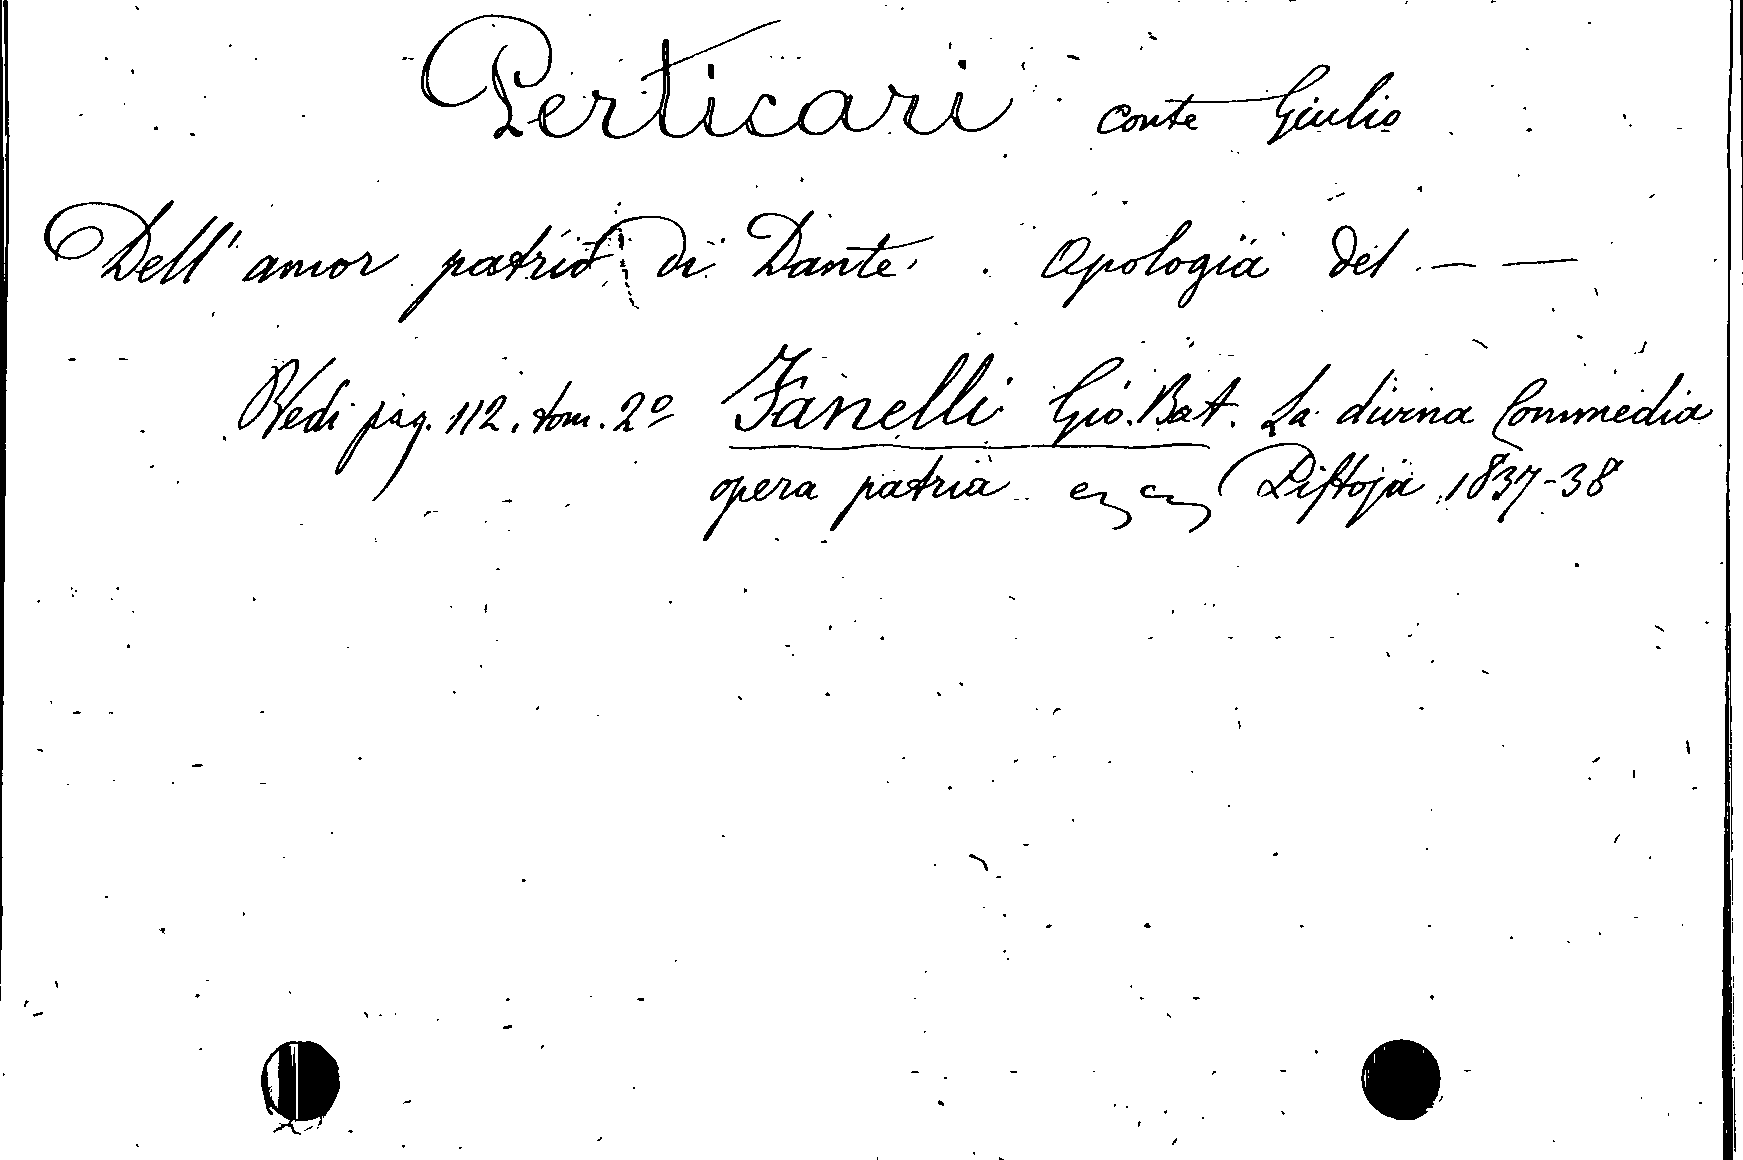 Perticari conte Giulio
Dell' amor patrio di Dante. Apologia del — —
Vedi pag. 112. tom. 2º Fanelli Gio. Bat. La divina Commedia
opera patria Pistoja 1837-38